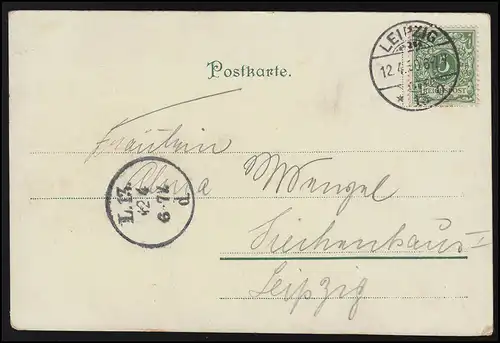 LEIPZIG
12.4.
Postkarte.
5
REICHSPOST
Fräulein
Wengel
L.13.
12/4
6-7
d.
Siechenhaus
Leipzig